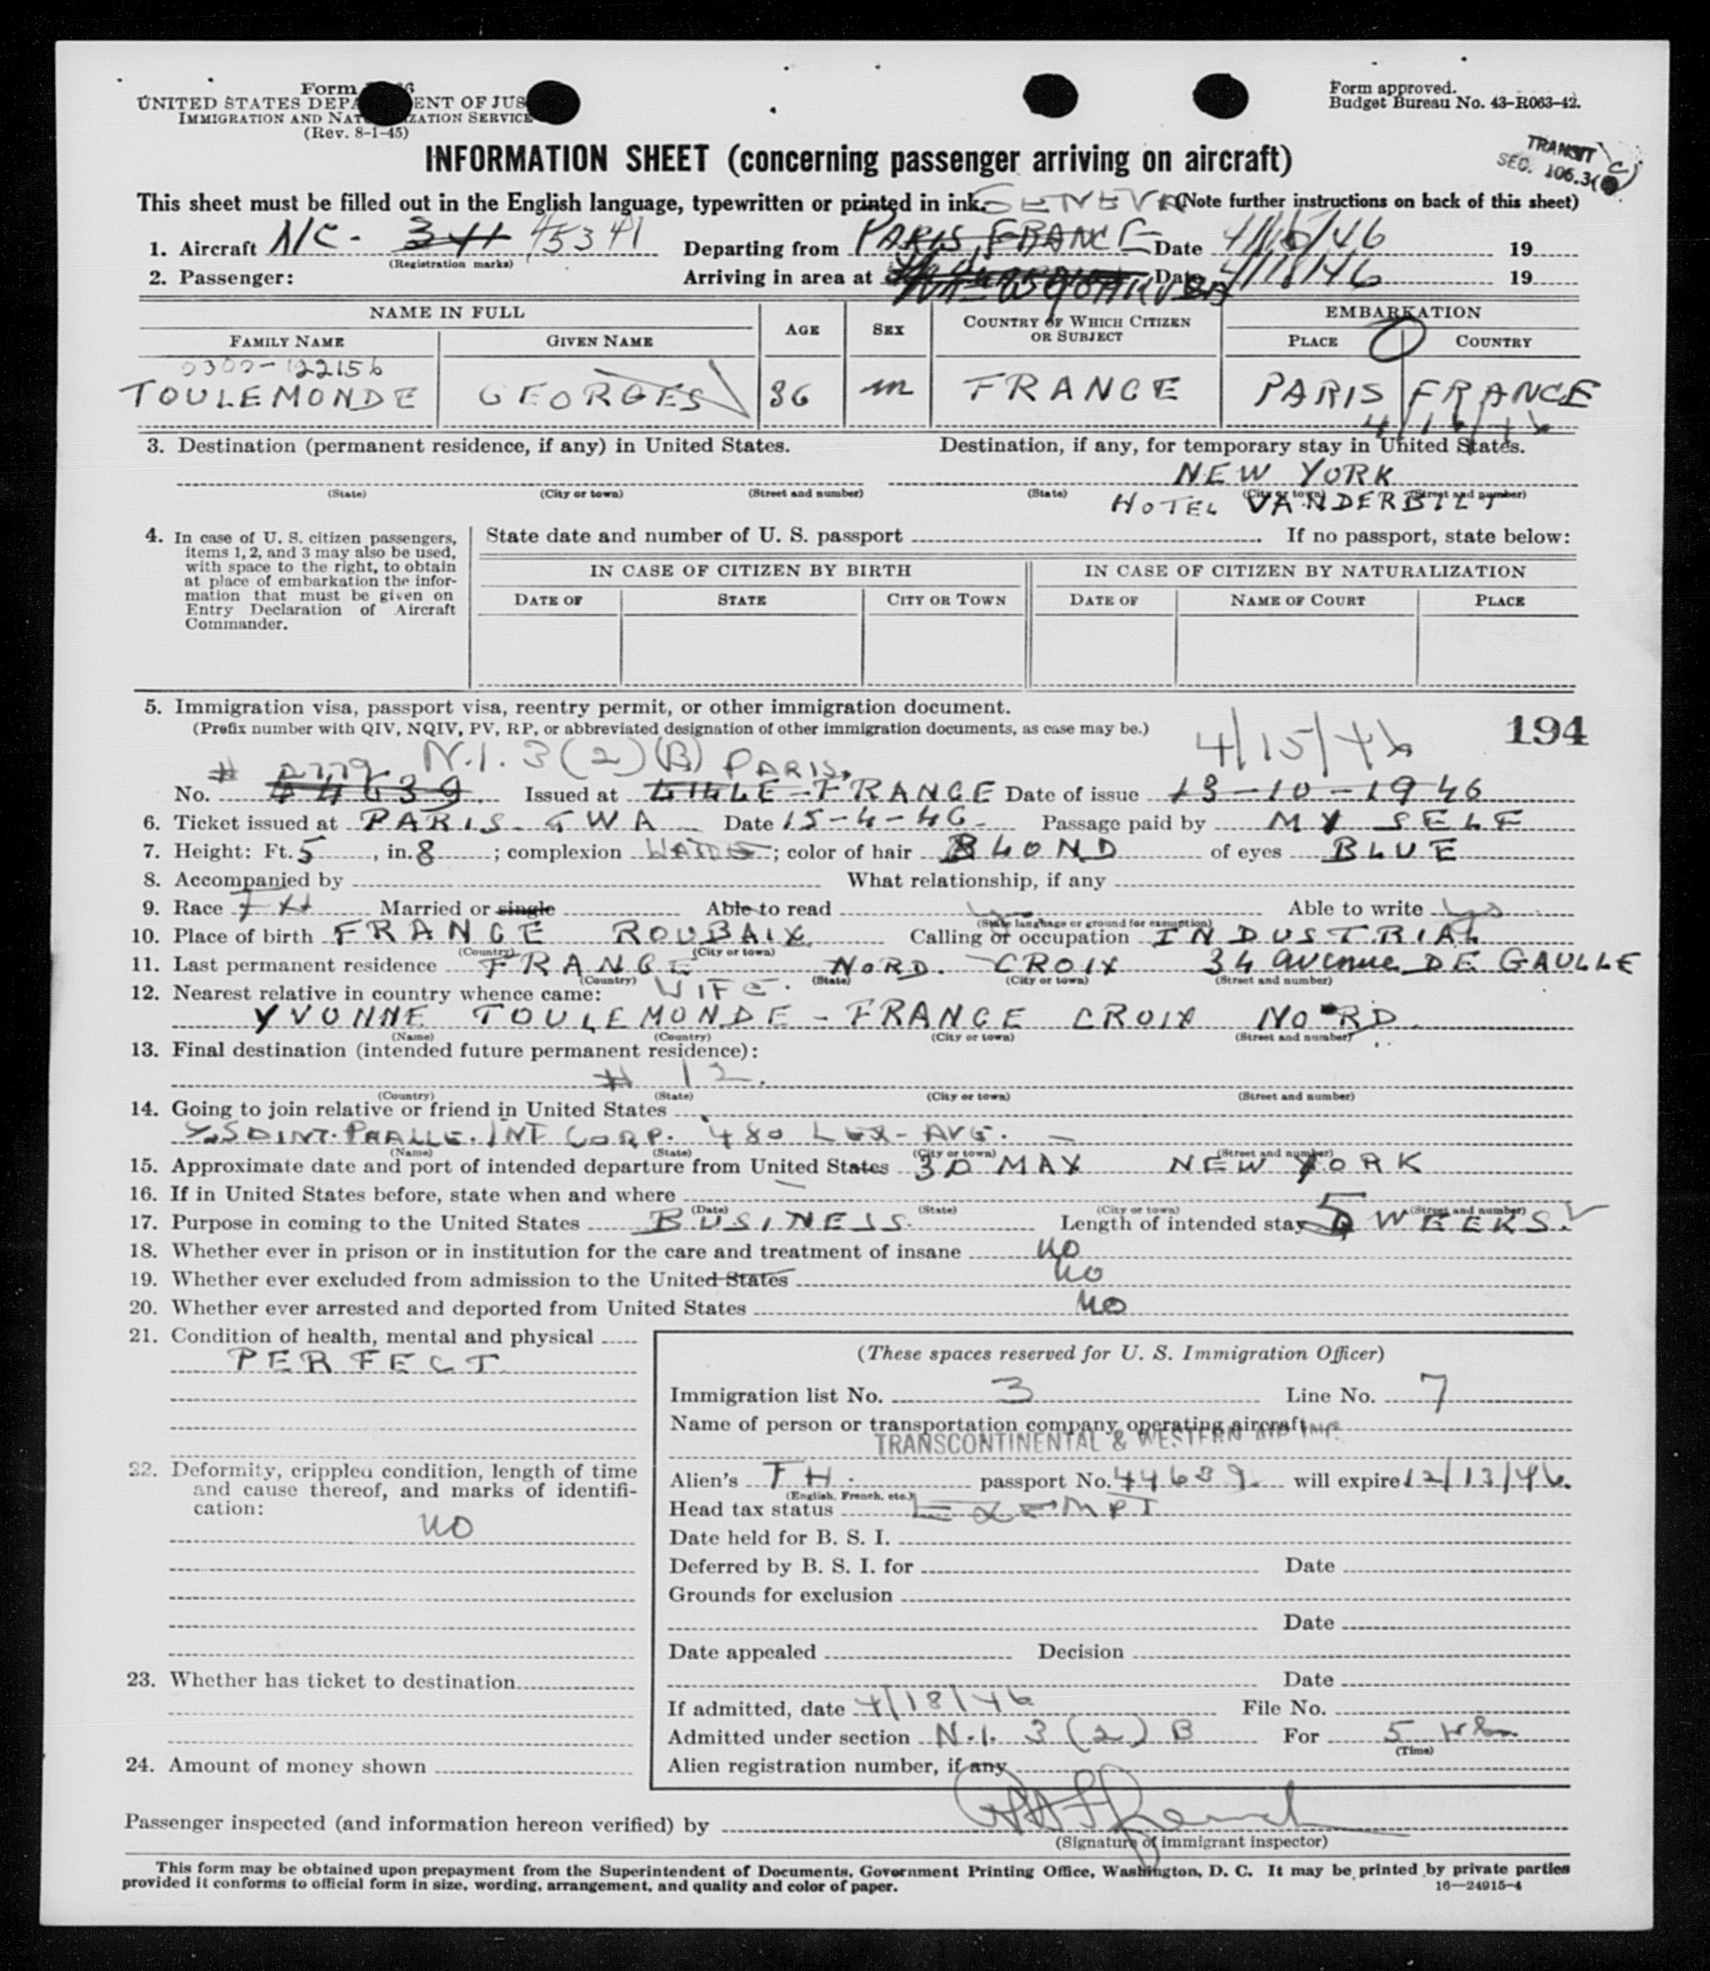 Form
UNITED STATES DEPARTMENT OF JUSTICE
IMMIGRATION AND NATURALIZATION SERVICE
(Rev. 8-1-45)
Form approved.
Budget Bureau No. 43-R063-42.
TRANSIT
SEC. 106.3(c)
INFORMATION SHEET (concerning passenger arriving on aircraft)
This sheet must be filled out in the English language, typewritten or printed in ink. GENEVA (Note further instructions on back of this sheet)
1. Aircraft NC- 341 45341 Departing from PARIS, FRANCE Date 4/16/46 19
(Registration marks)
2. Passenger: Arriving in area at Date 4/18/46 19
NAME IN FULL AGE SEX COUNTRY OF WHICH CITIZEN OR SUBJECT EMBARKATION
FAMILY NAME GIVEN NAME PLACE COUNTRY
0300-122156
TOULEMONDE GEORGES 36 m FRANCE PARIS FRANCE
4/16/46
3. Destination (permanent residence, if any) in United States. Destination, if any, for temporary stay in United States.
NEW YORK
(State) (City or town) (Street and number) (State) (City or town) (Street and number)
HOTEL VANDERBILT
4. In case of U. S. citizen passengers, items 1, 2, and 3 may also be used, with space to the right, to obtain at place of embarkation the information that must be given on Entry Declaration of Aircraft Commander.
State date and number of U. S. passport If no passport, state below:
IN CASE OF CITIZEN BY BIRTH IN CASE OF CITIZEN BY NATURALIZATION
DATE OF STATE CITY OR TOWN DATE OF NAME OF COURT PLACE
5. Immigration visa, passport visa, reentry permit, or other immigration document.
(Prefix number with QIV, NQIV, PV, RP, or abbreviated designation of other immigration documents, as case may be.)
194
# 2779 N.I. 3(2)(B) PARIS, 4/15/46
No. 44639 Issued at LILLE-FRANCE Date of issue 13-10-1946
6. Ticket issued at PARIS TWA Date 15-4-46- Passage paid by MY SELF
7. Height: Ft. 5, in. 8; complexion WHITE; color of hair BLOND of eyes BLUE
8. Accompanied by What relationship, if any
9. Race FH Married or single Able to read yes Able to write yes
(State language or ground for exemption)
10. Place of birth FRANCE ROUBAIX Calling or occupation INDUSTRIAL
(Country) (City or town)
11. Last permanent residence FRANCE NORD. CROIX 34 avenue DE GAULLE
(Country) (State) (City or town) (Street and number)
12. Nearest relative in country whence came: WIFE.
YVONNE TOULEMONDE - FRANCE CROIX NORD.
(Name) (Country) (City or town) (Street and number)
13. Final destination (intended future permanent residence):
# 12.
(Country) (State) (City or town) (Street and number)
14. Going to join relative or friend in United States
PHALLE. INT CORP. 480 LEX-AVE.
(Name) (State) (City or town) (Street and number)
15. Approximate date and port of intended departure from United States 30 MAY NEW YORK
16. If in United States before, state when and where
(Date) (State) (City or town) (Street and number)
17. Purpose in coming to the United States BUSINESS. Length of intended stay 5 WEEKS.
18. Whether ever in prison or in institution for the care and treatment of insane no
19. Whether ever excluded from admission to the United States no
20. Whether ever arrested and deported from United States no
21. Condition of health, mental and physical
PERFECT
22. Deformity, crippled condition, length of time and cause thereof, and marks of identification:
no
23. Whether has ticket to destination
24. Amount of money shown
(These spaces reserved for U. S. Immigration Officer)
Immigration list No. 3 Line No. 7
Name of person or transportation company operating aircraft
TRANSCONTINENTAL & WESTERN AIR INC.
Alien's FH. passport No. 44639 will expire 12/13/46.
(English, French, etc.)
Head tax status EXEMPT
Date held for B. S. I.
Deferred by B. S. I. for Date
Grounds for exclusion
Date
Date appealed Decision
Date
If admitted, date 4/18/46 File No.
Admitted under section N.I. 3(2) B For 5 wks
(Time)
Alien registration number, if any
Passenger inspected (and information hereon verified) by
(Signature of immigrant inspector)
This form may be obtained upon prepayment from the Superintendent of Documents, Government Printing Office, Washington, D. C. It may be printed by private parties
provided it conforms to official form in size, wording, arrangement, and quality and color of paper. 16—24915-4